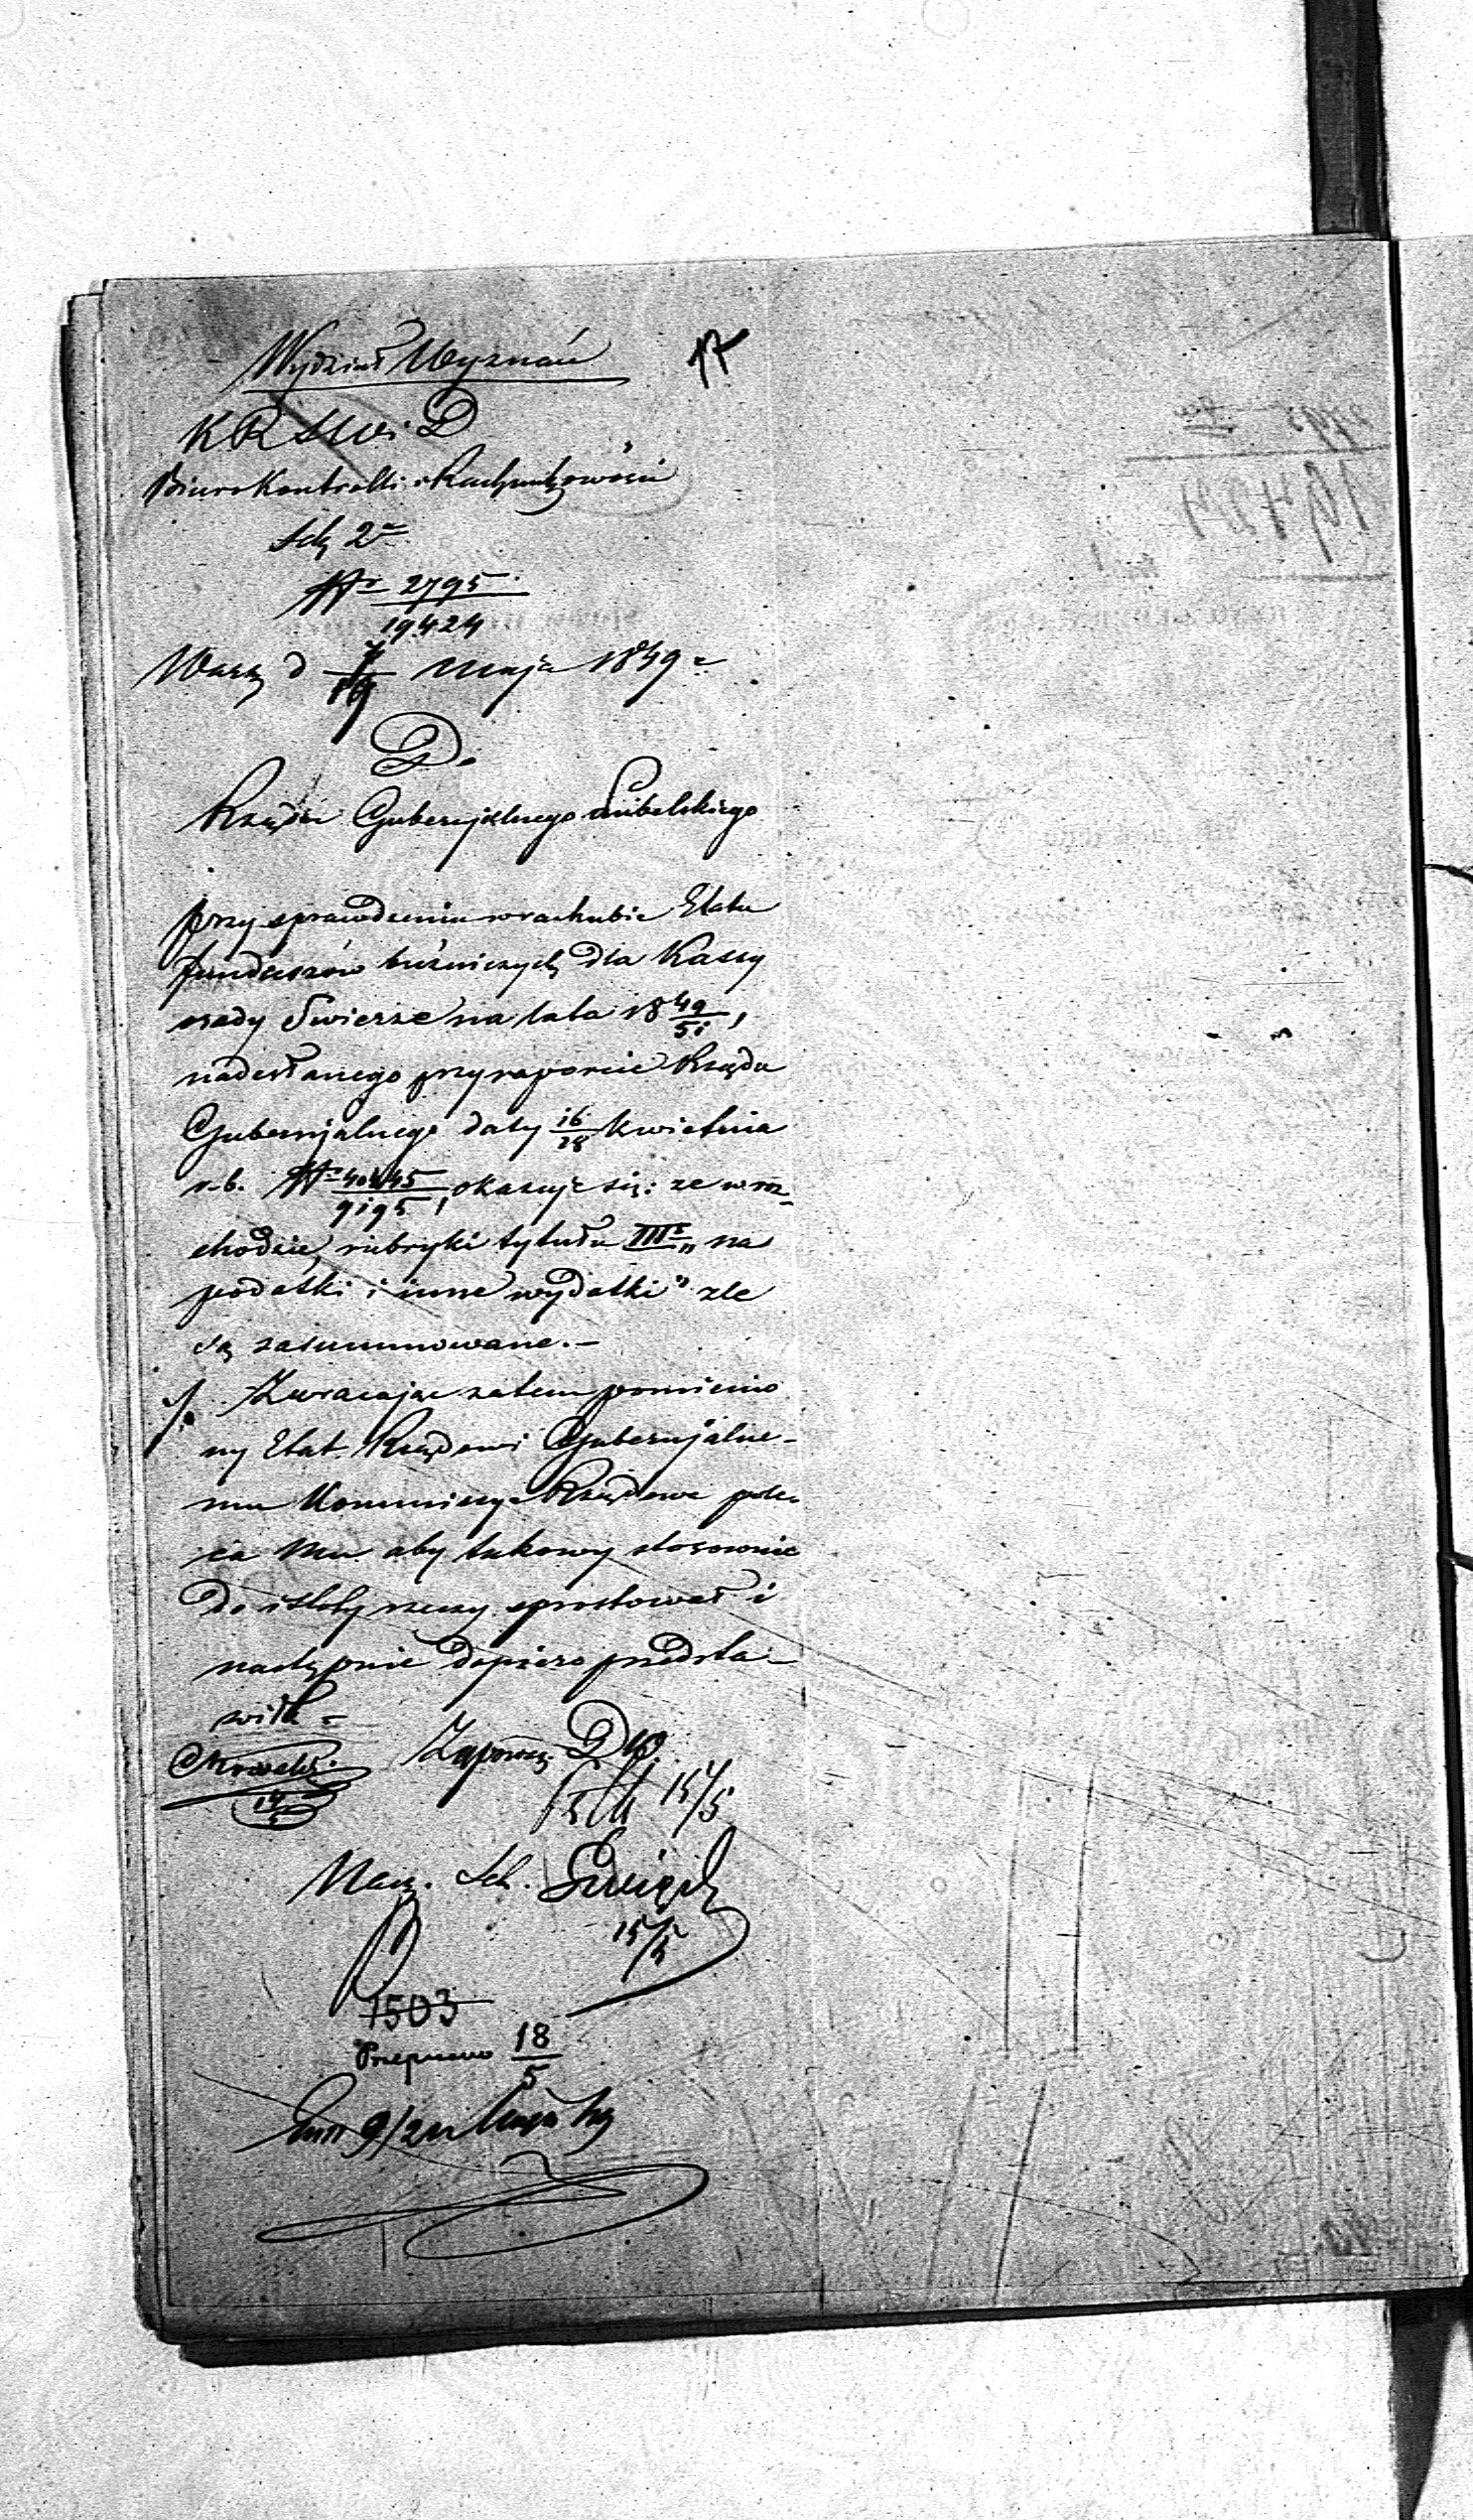 Wydział Wyznań
17
KRSWiD
Biuro Kontrolli i Rachunkowości
Sek 2a
Nr 2795/19424
Warsz d 7/19 maja 1849 r
Do
Rządu Gubernjalnego Lubelskiego
przy sprawdzeniu w rachubie Etatu
funduszów bóżniczych dla Kassy
osady Swierze na lata 18 49/51,
nadesłanego przy raporcie Rządu
Gubernjalnego daty 16/28 Kwietnia
r. b. Nr 40445/9195, okazuje się: że w roz-
chodzie, rubryki tytułu III „na
podatki i inne wydatki" źle
są zasummowane.-
Zwracając zatem pomienio
ny Etat Rządowi Gubernjalne-
mu Kommissya Rządowa pole-
ca Mu aby takowy stosownie
do istoty rzeczy sprostował i
następnie dopiero przedsta-
wił.
15/5
Nacz. Sek.
15/5
1503
Przepisano 18/5
9/21 Maja